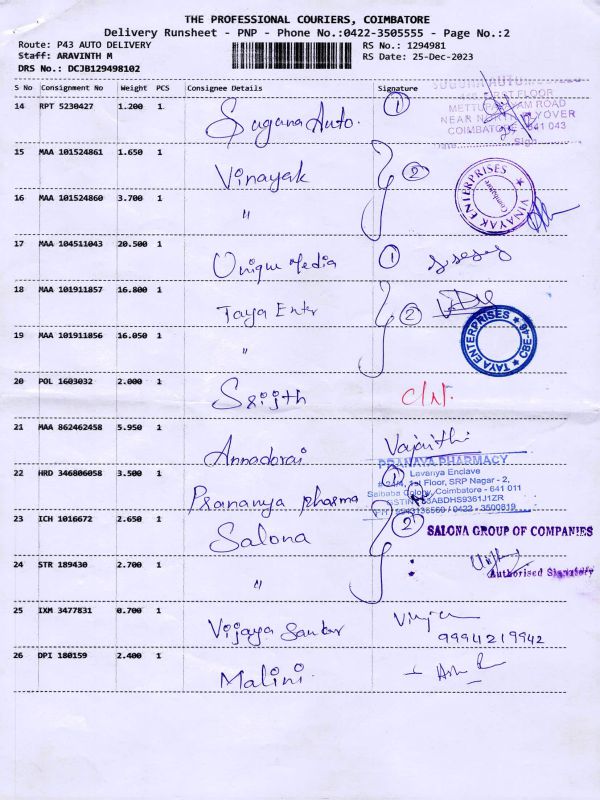 THE PROFESSIONAL COURIERS, COIMBATORE
Delivery Runsheet - PNP - Phone No.:0422-3505555 - Page No.:2
Route: P43 AUTO DELIVERY
RS No.: 1294981
Staff: ARAVINTH M
RS Date: 25-Dec-2023
DRS No.: DCJB129498102
S No Consignment No Weight PCS Consignee Details Signature
14 RPT 5230427 1.200 1 Suguna Auto. 1
FIRST FLOOR
METTUPALAYAM ROAD
NEAR NORTH FLYOVER
COIMBATORE - 641 043
Date Sign
15 MAA 101524861 1.650 1 Vinayak 2
VINAYAK ENTERPRISES
Coimbatore
16 MAA 101524860 3.700 1 "
17 MAA 104511043 20.500 1 Unique Media 1
18 MAA 101911857 16.800 1 Taya Entr 2
TAYA ENTERPRISES
CBE-48
19 MAA 101911856 16.050 1 "
20 POL 1603032 2.000 1 Srijith C/N.
21 MAA 862462458 5.950 1 Annadorai
PRANAYA PHARMACY
Lavanya Enclave
1st Floor, SRP Nagar - 2,
Saibaba Colony, Coimbatore - 641 011
22 HRD 346806058 3.500 1 Prananya pharma 1
23 ICH 1016672 2.650 1 Salona 2
SALONA GROUP OF COMPANIES
24 STR 189430 2.700 1 "
Authorised Signatory
25 IXM 3477831 0.700 1 Vijaya Sankar
9994219942
26 DPI 180159 2.400 1 Malini